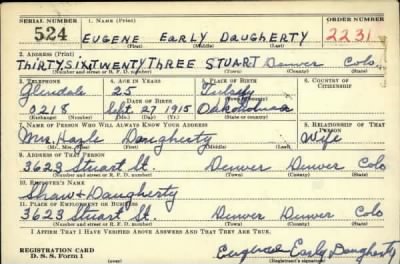 SERIAL NUMBER 1. NAME (Print) ORDER NUMBER
524 EUGENE EARLY DAUGHERTY 2231
(First) (Middle) (Last)
2. ADDRESS (Print)
THIRTYSIXTWENTYTHREE STUART Denver Colo
(Number and street or R. F. D. number) (Town) (County) (State)
3. TELEPHONE 4. AGE IN YEARS 5. PLACE OF BIRTH 6. COUNTRY OF CITIZENSHIP
Glendale 25 Tulsa
DATE OF BIRTH
0218 Sept. 27 1915 Oaklohoma
(Exchange) (Number) (Mo.) (Day) (Yr.) (State or country)
7. NAME OF PERSON WHO WILL ALWAYS KNOW YOUR ADDRESS 8. RELATIONSHIP OF THAT PERSON
Mrs. Daugherty Wife
(Mr., Mrs., Miss) (First) (Middle) (Last)
9. ADDRESS OF THAT PERSON
3623 Stuart St. Denver Denver Colo
(Number and street or R. F. D. number) (Town) (County) (State)
10. EMPLOYER'S NAME
Shaw & Daugherty
11. PLACE OF EMPLOYMENT OR BUSINESS
3623 Stuart St. Denver Denver Colo
(Number and street or R. F. D. number) (Town) (County) (State)
I AFFIRM THAT I HAVE VERIFIED ABOVE ANSWERS AND THAT THEY ARE TRUE.
REGISTRATION CARD
D. S. S. Form 1 Eugene Early Daugherty
(Registrant's signature)